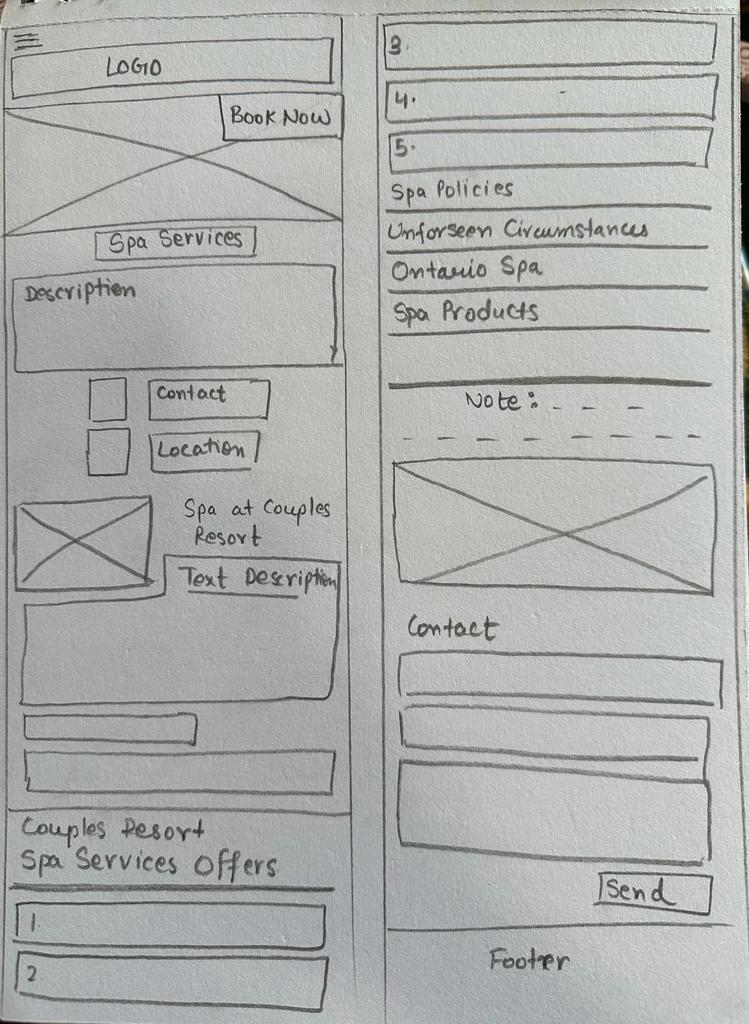 LOGO
BOOK NOW
Spa Services
Description
Contact
Location
Spa at Couples
Resort
Text Description
Couples Resort
Spa Services Offers
1.
2.
3.
4.
5.
Spa Policies
Unforseen Circumstances
Ontario Spa
Spa Products
Note: - - -
- - - - - - - -
Contact
Send
Footer